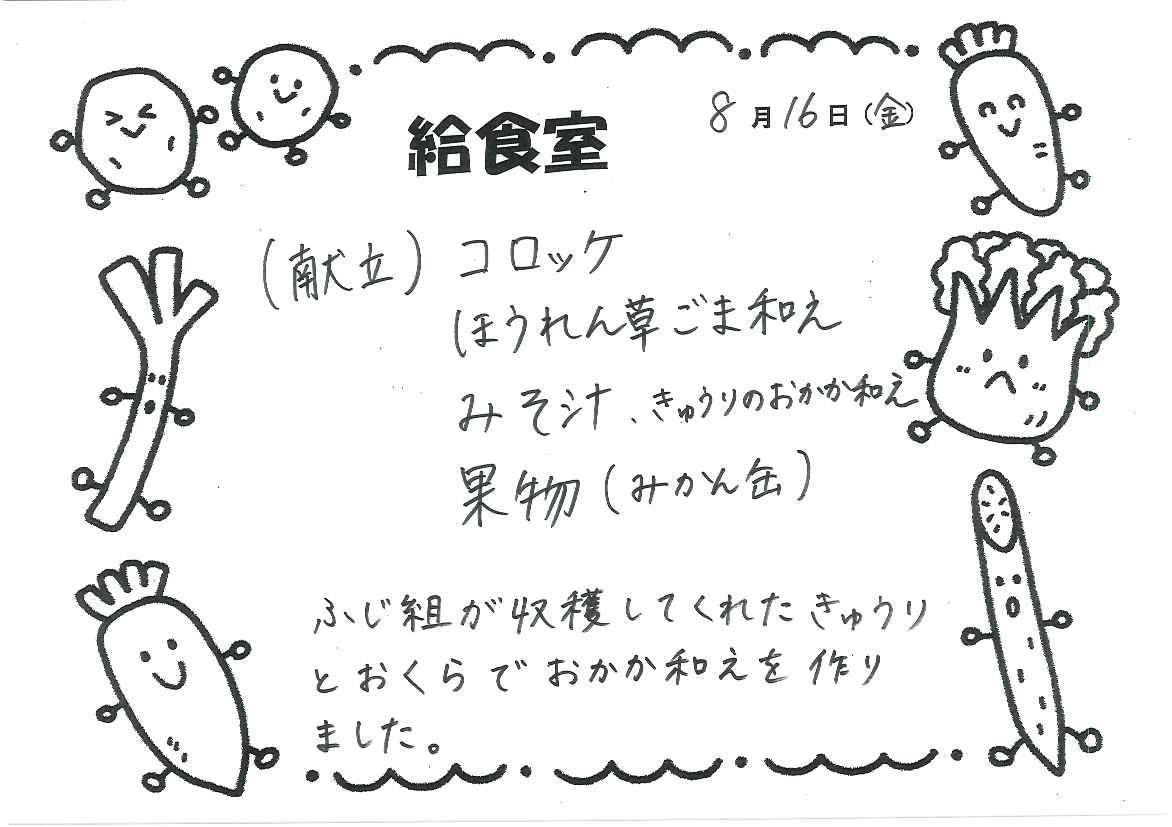 給食室
8月16日(金)
(献立) コロッケ
ほうれん草ごま和え
みそ汁、きゅうりのおかか和え
果物(みかん缶)
ふじ組が収穫してくれたきゅうり
とおくらでおかか和えを作り
ました。